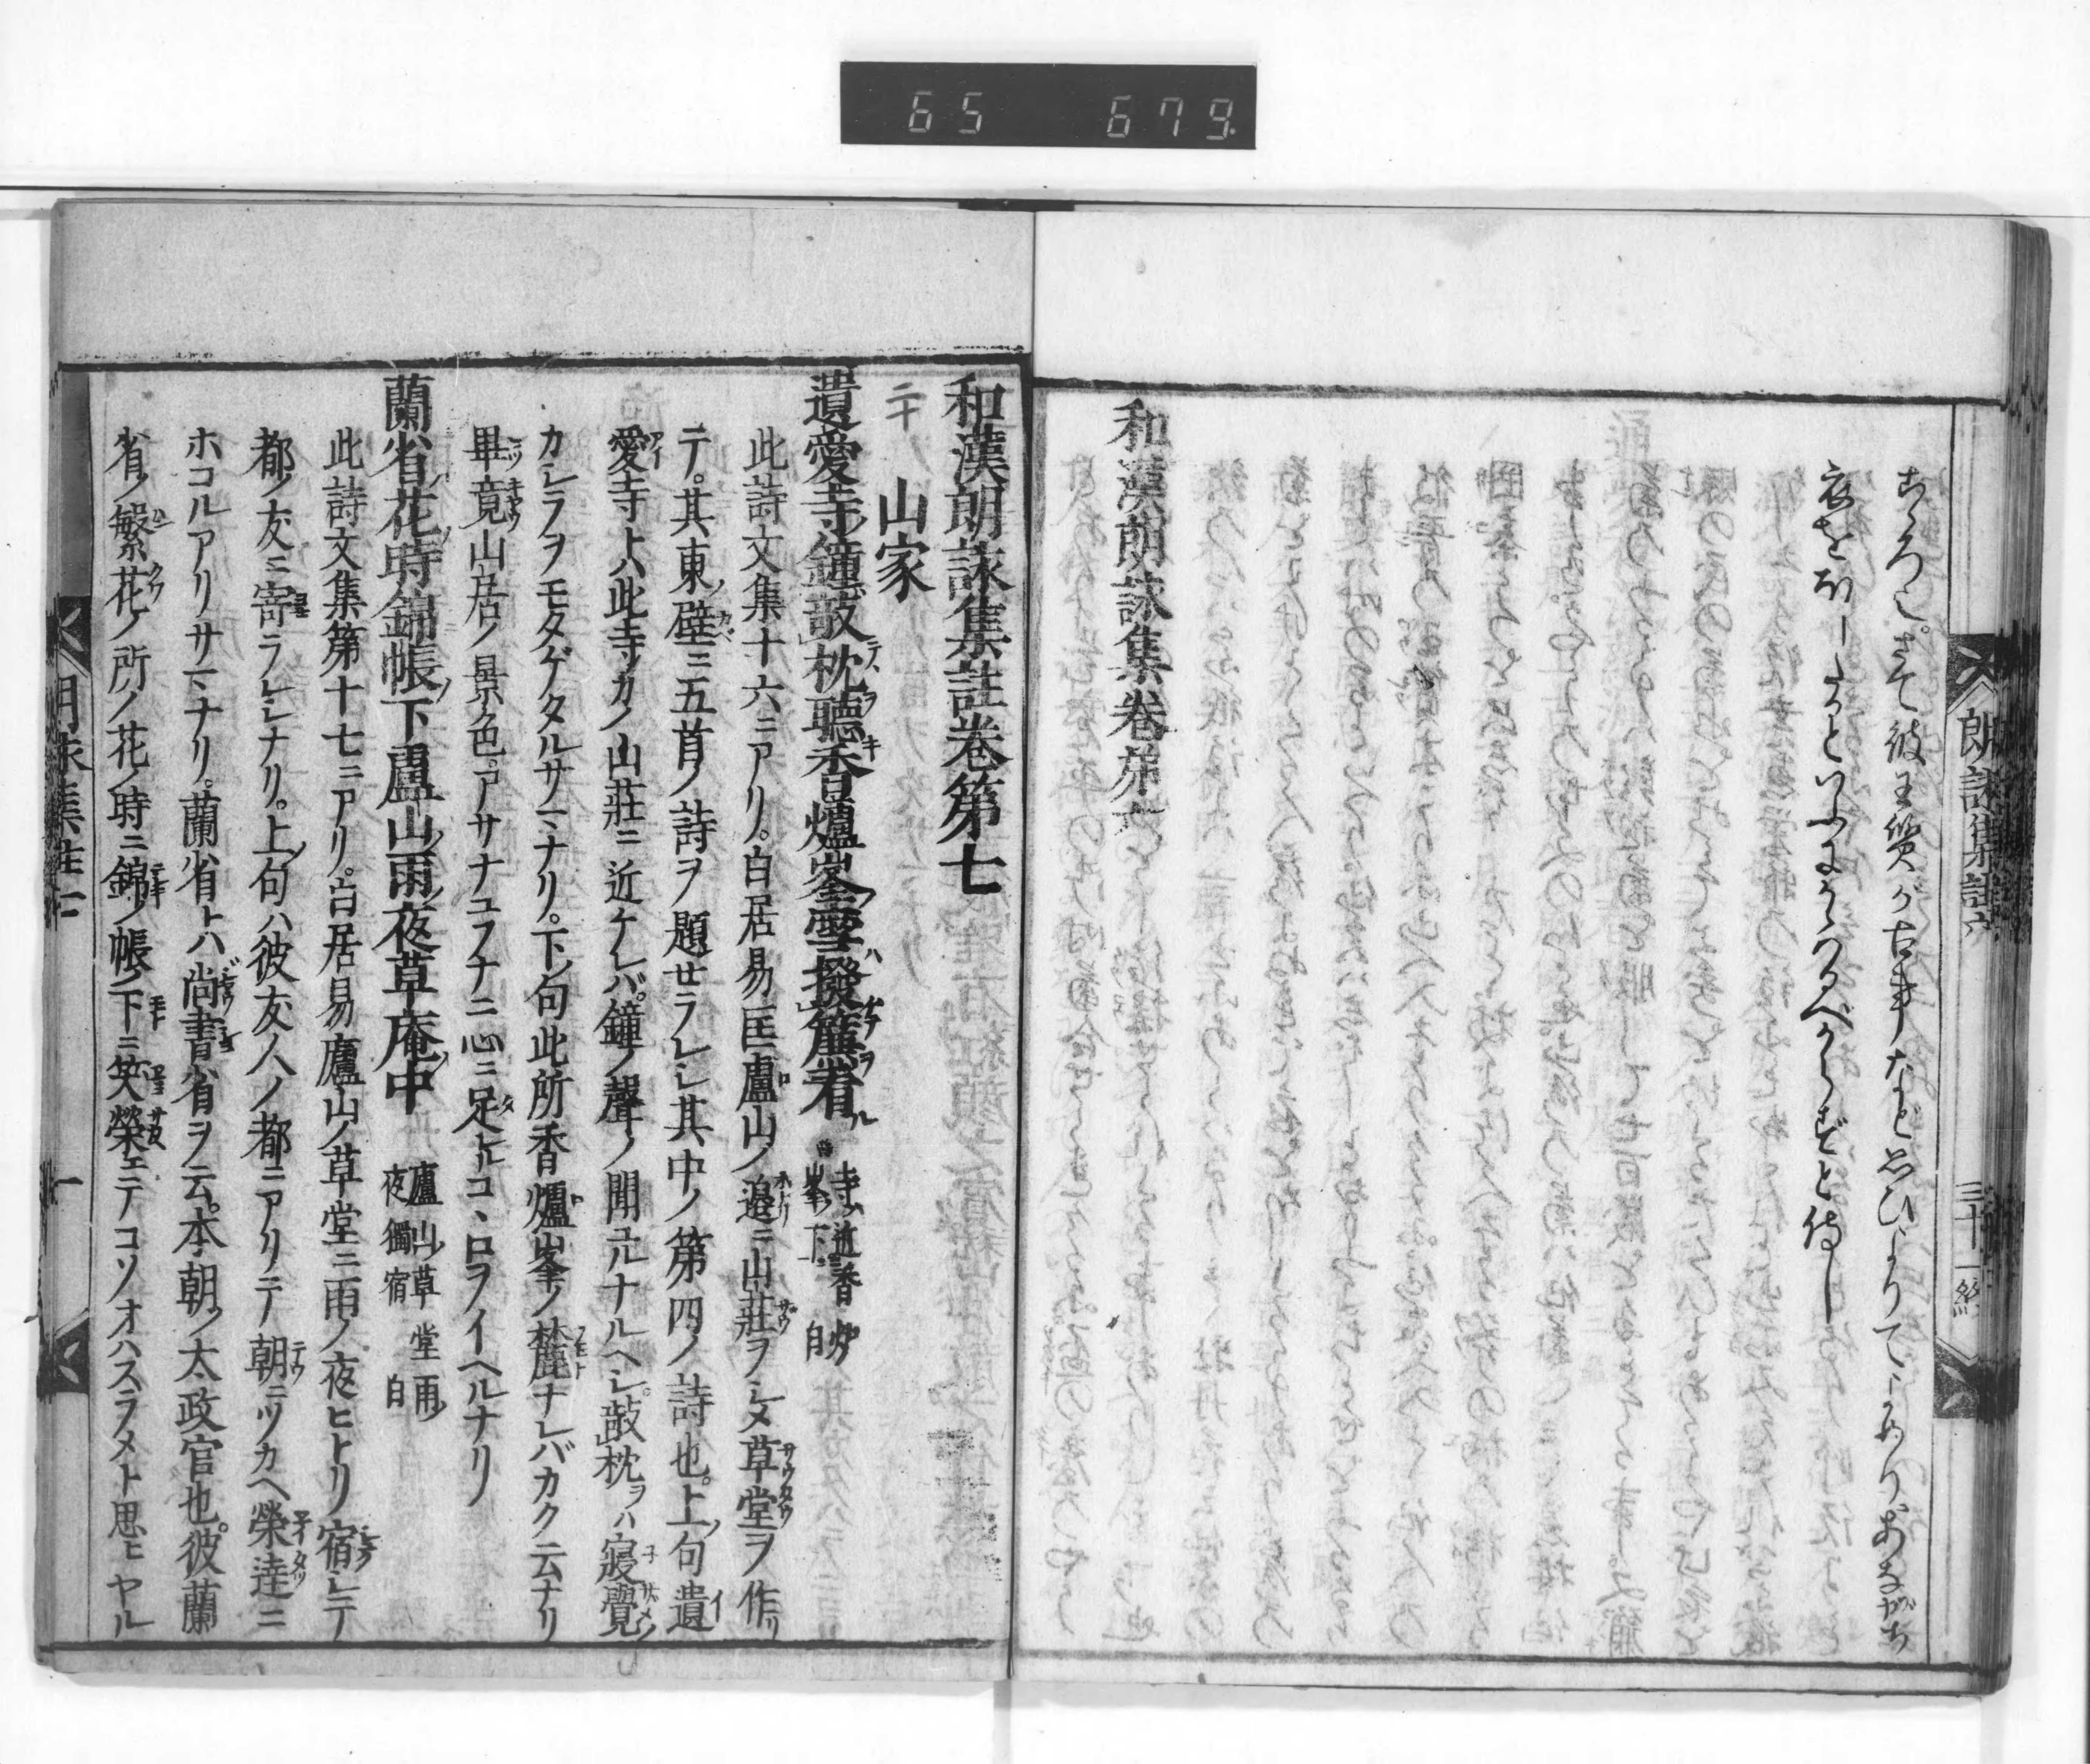 65 679
こゝろ也さて彼王質が古事などおもひよりてよめりあながち
衣をかへしつるといふにはかゝるべからずと侍し
和漢朗詠集巻第六
朗詠集註六
三十一終
和漢朗詠集註巻第七
山家
遺愛寺ノ鐘ハ敧枕聴香爐峯ノ雪ハ撥簾看
寺近香炉
峯下 白
此詩文集十六ニアリ。白居易匡廬山ノ邊ニ山莊ヲシメ草堂ヲ作リ
テ。其東ノ壁ニ五首ノ詩ヲ題セラレシ其中ノ第四ノ詩也。上ノ句遺
愛寺トハ此寺カノ山莊ニ近ケレバ。鐘ノ聲ノ聞ユルナルヘシ。敧枕ヲハ寢覺ノ
カシラヲモタゲタルサマナリ。下ノ句此所香爐峯ノ麓ナレバカク云ナリ
畢竟山居ノ景色。アサナユフナニ心ニ足ヌルコヽロヲイヘルナリ
蘭省花時錦帳下廬山雨夜草庵中
廬山草堂雨
夜獨宿 白
此詩文集第十七ニアリ。白居易廬山ノ草堂ニ雨ノ夜ヒトリ宿シテ
都ノ友ニ寄ラレシナリ。上ノ句ハ彼友人ノ都ニアリテ朝ニツカヘ榮達ニ
ホコルアリサマナリ。蘭省トハ尚書省ヲ云。本朝ノ太政官也。彼蘭
省ノ繁花ノ所ノ花ノ時ニ錦ノ帳ノ下ニ笑榮エテコソオハスラメト思ヒヤル
一